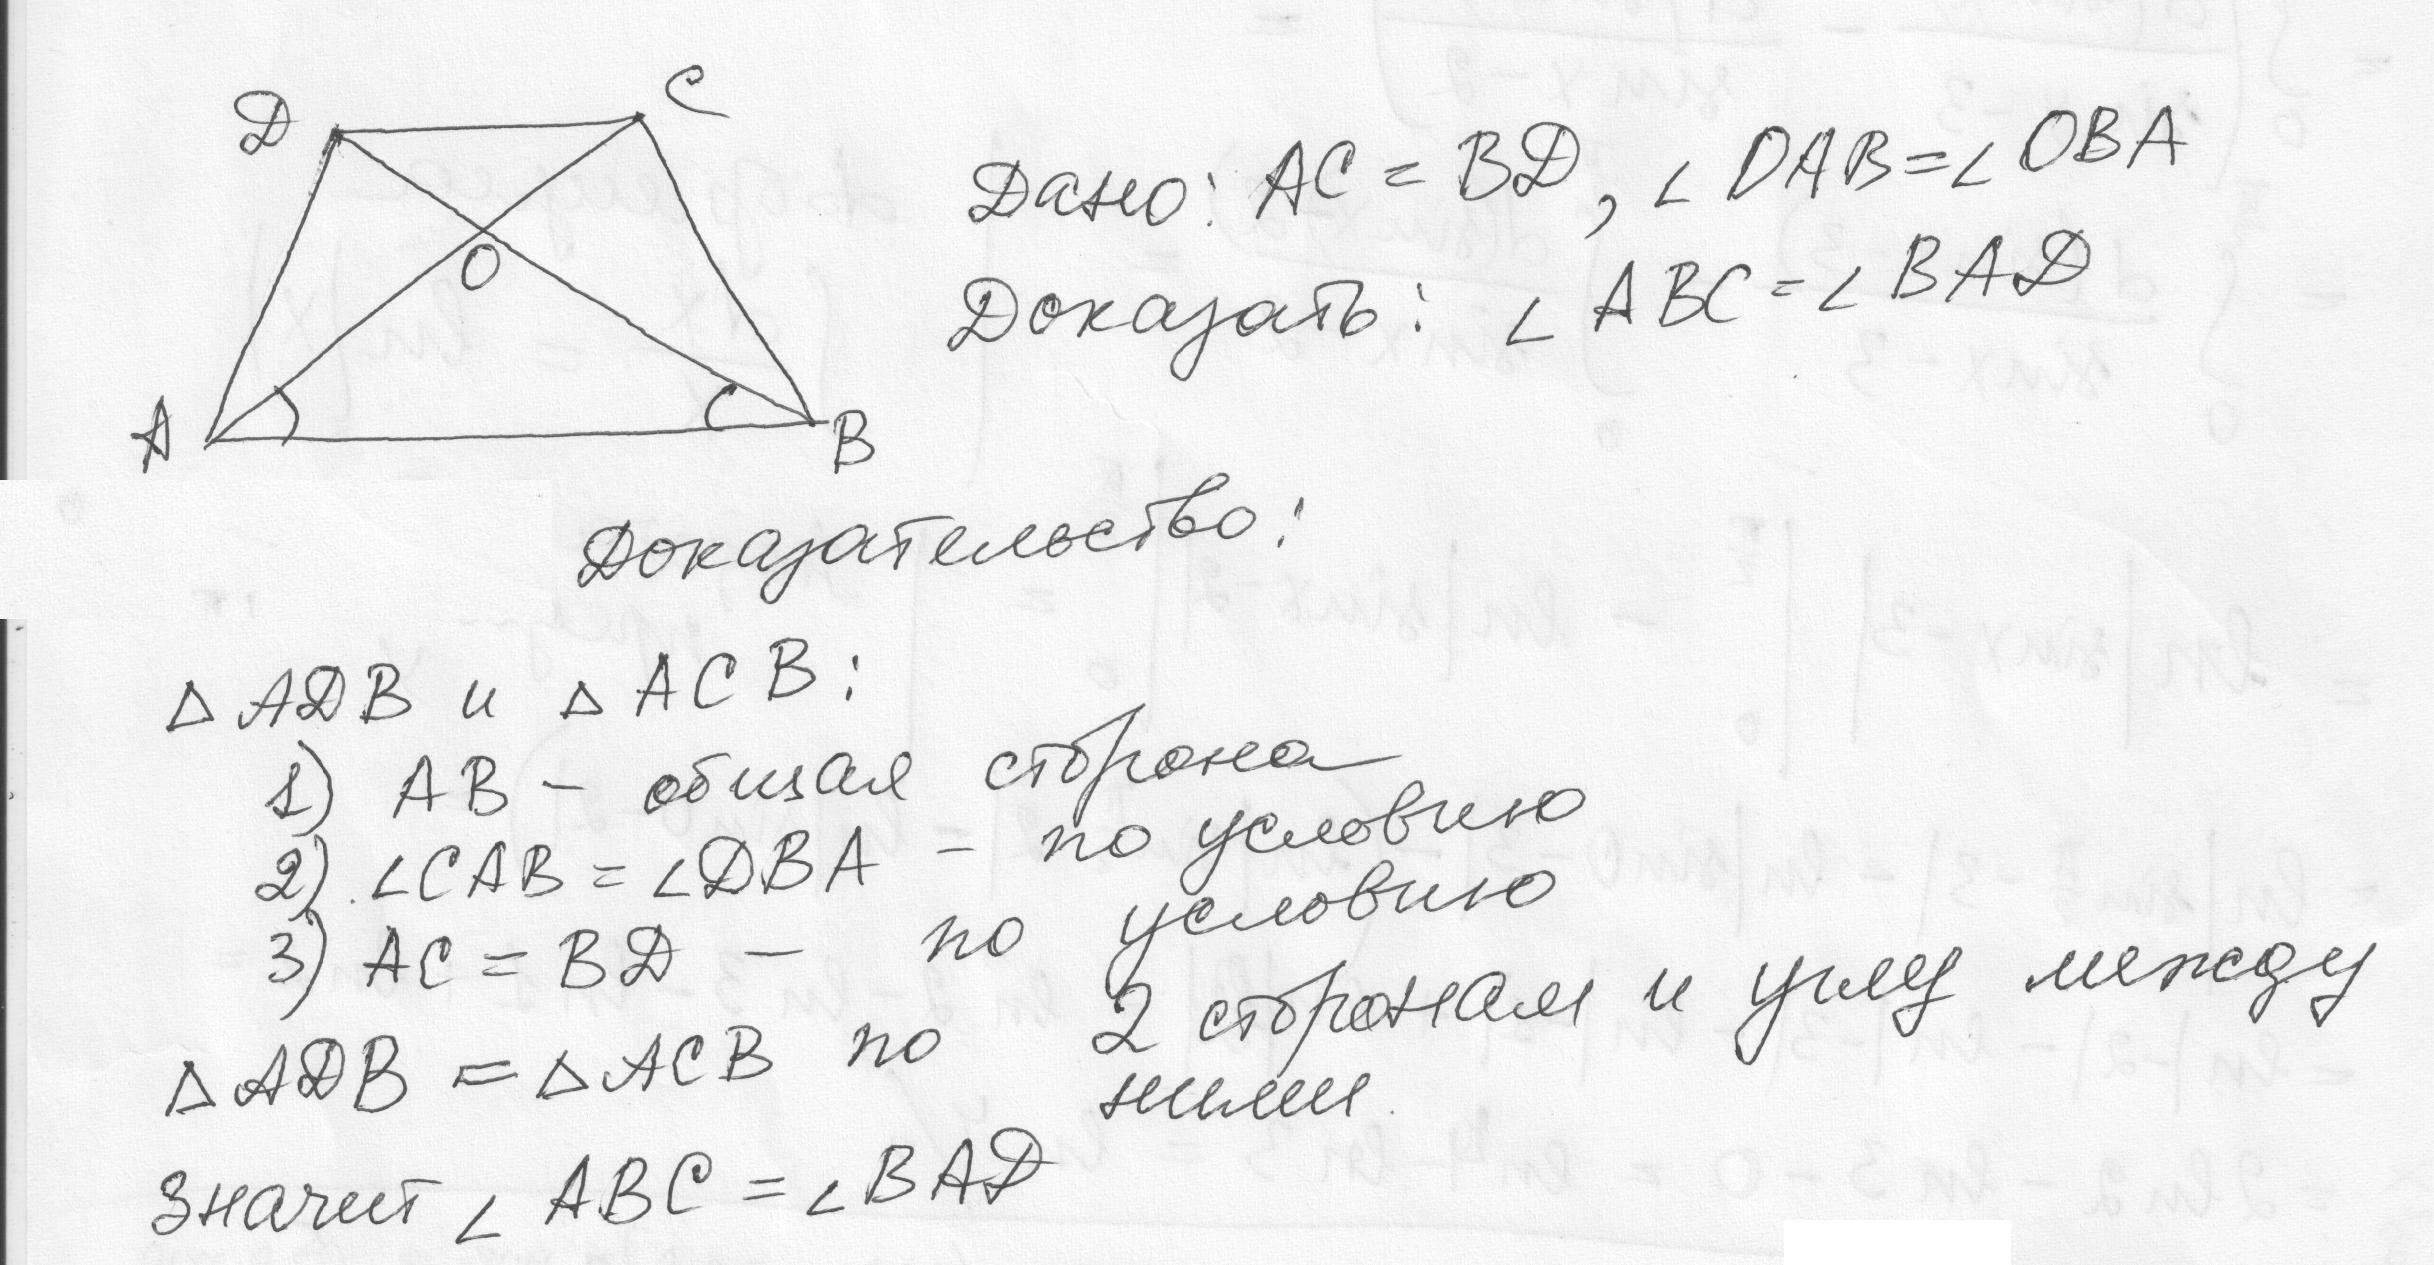 D C
O
A B
Дано: AC = BD, ∠ DAB = ∠ OBA
Доказать: ∠ ABC = ∠ BAD
Доказательство:
△ ADB и △ ACB:
1) AB – общая сторона
2) ∠CAB = ∠DBA – по условию
3) AC = BD – по условию
△ ADB = △ ACB по 2 сторонам и углу между
ними.
Значит ∠ ABC = ∠ BAD